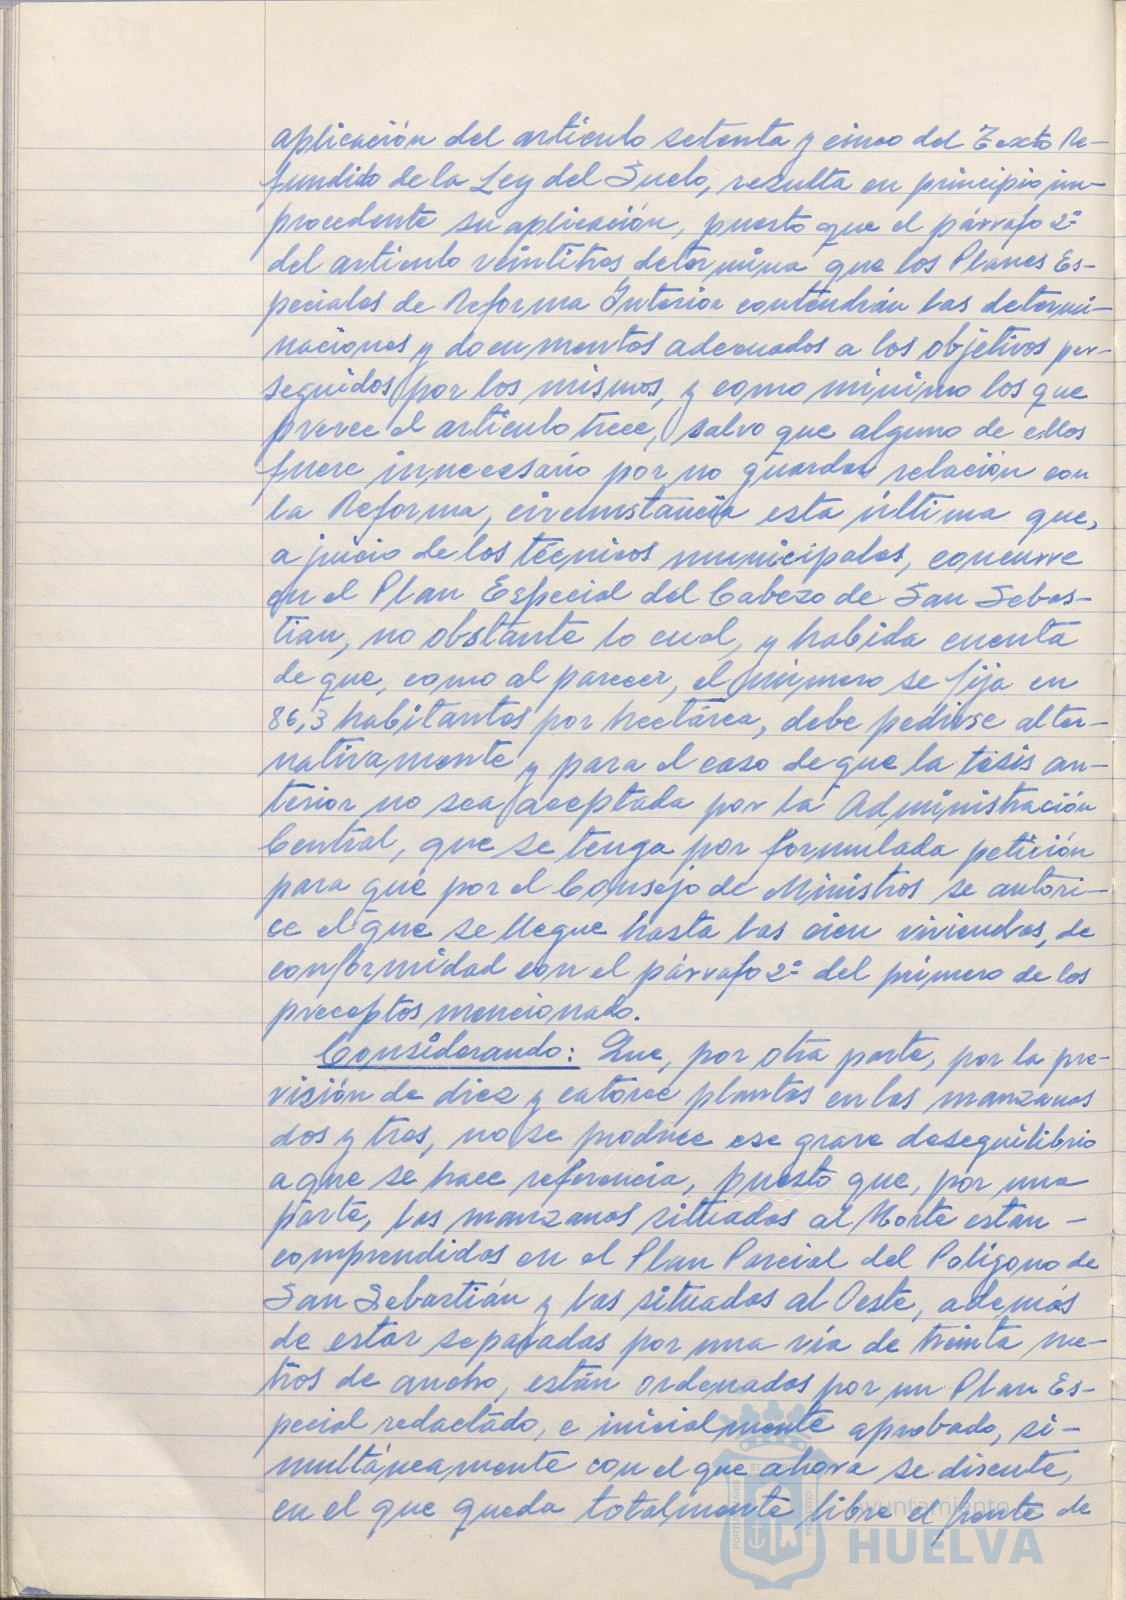 aplicación del artículo setenta y cinco del Texto Re-
fundido de la Ley del Suelo, resulta en principio im-
procedente su aplicación, puesto que el párrafo 2º
del artículo veintitres determina que los Planes Es-
peciales de Reforma Interior contendrán las determi-
naciones y documentos adecuados a los objetivos per-
seguidos por los mismos, y como mínimo los que
prevee el artículo trece, salvo que alguno de ellos
fuere innecesario por no guardar relación con
la Reforma, circunstancia esta última que,
a juicio de los técnicos municipales, concurre
en el Plan Especial del Cabezo de San Sebas-
tian, no obstante lo cual, y habida cuenta
de que, como al parecer, el número se fija en
86,3 habitantes por hectárea, debe pedirse alter-
nativamente y para el caso de que la tesis an-
terior no sea aceptada por la Administración
Central, que se tenga por formulada petición
para que por el Consejo de Ministros se autori-
ce el que se llegue hasta las cien viviendas, de
conformidad con el párrafo 2º del primero de los
preceptos mencionado.
Considerando: Que, por otra parte, por la pre-
visión de diez y catorce plantas en las manzanas
dos y tres, no se produce ese grave desequilibrio
a que se hace referencia, puesto que, por una
parte, las manzanas situadas al Norte estan -
comprendidas en el Plan Parcial del Polígono de
San Sebastián y las situadas al Oeste, además
de estar separadas por una vía de treinta me-
tros de ancho, están ordenadas por un Plan Es-
pecial redactado, e inicialmente aprobado, si-
multáneamente con el que ahora se discute,
en el que queda totalmente libre el frente de
Ayuntamiento
HUELVA